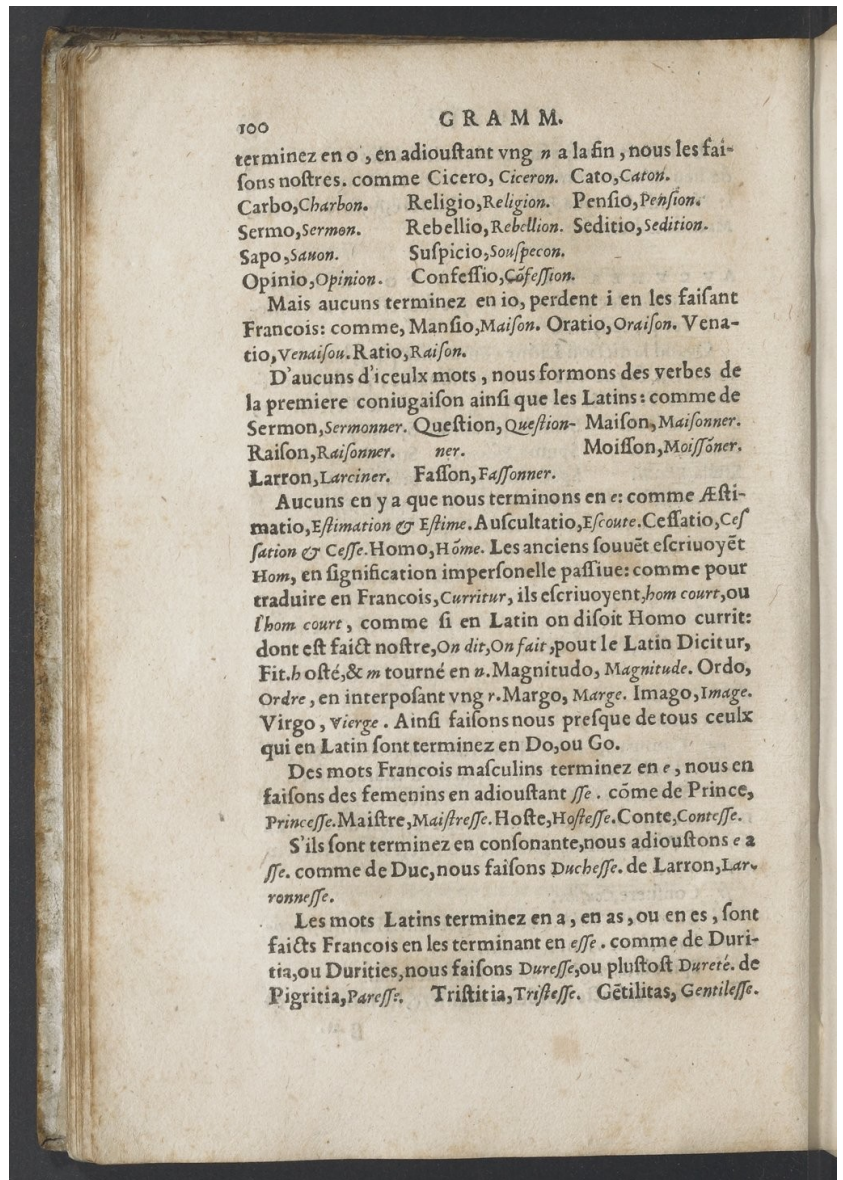 100 GRAMM.
terminez en o , en adiouſtant vng n a la fin , nous les fai-
ſons noſtres. comme Cicero, Ciceron. Cato, Caton.
Carbo, Charbon. Religio, Religion. Penſio, Penſion.
Sermo, Sermon. Rebellio, Rebellion. Seditio, Sedition.
Sapo, Sauon. Suſpicio, Souſpecon.
Opinio, Opinion. Confeſſio, Cõfeſſion.
Mais aucuns terminez en io, perdent i en les faiſant
Francois: comme, Manſio, Maiſon. Oratio, Oraiſon. Vena-
tio, Venaiſou. Ratio, Raiſon.
D'aucuns d'iceulx mots , nous formons des verbes de
la premiere coniugaiſon ainſi que les Latins: comme de
Sermon, Sermonner. Queſtion, Queſtion- Maiſon, Maiſonner.
Raiſon, Raiſonner. ner. Moiſſon, Moiſſõner.
Larron, Larciner. Faſſon, Faſſonner.
Aucuns en y a que nous terminons en e: comme Æſti-
matio, Eſtimation & Eſtime. Auſcultatio, Eſcoute. Ceſſatio, Ceſ
ſation & Ceſſe. Homo, Hõme. Les anciens ſouuẽt eſcriuoyẽt
Hom, en ſignification imperſonelle paſſiue: comme pour
traduire en Francois, Curritur, ils eſcriuoyent, hom court, ou
l'hom court , comme ſi en Latin on diſoit Homo currit:
dont eſt faict noſtre, On dit, On fait, pout le Latin Dicitur,
Fit. h oſté, & m tourné en n. Magnitudo, Magnitude. Ordo,
Ordre , en interpoſant vng r. Margo, Marge. Imago, Image.
Virgo , Vierge . Ainſi faiſons nous preſque de tous ceulx
qui en Latin ſont terminez en Do, ou Go.
Des mots Francois maſculins terminez en e , nous en
faiſons des femenins en adiouſtant ſſe . cõme de Prince,
Princeſſe. Maiſtre, Maiſtreſſe. Hoſte, Hoſteſſe. Conte, Conteſſe.
S'ils ſont terminez en conſonante, nous adiouſtons e a
ſſe. comme de Duc, nous faiſons Ducheſſe. de Larron, Lar-
ronneſſe.
Les mots Latins terminez en a , en as , ou en es , ſont
faicts Francois en les terminant en eſſe . comme de Duri-
tia, ou Durities, nous faiſons Dureſſe, ou pluſtoſt Dureté. de
Pigritia, Pareſſe. Triſtitia, Triſteſſe. Gẽtilitas, Gentileſſe.